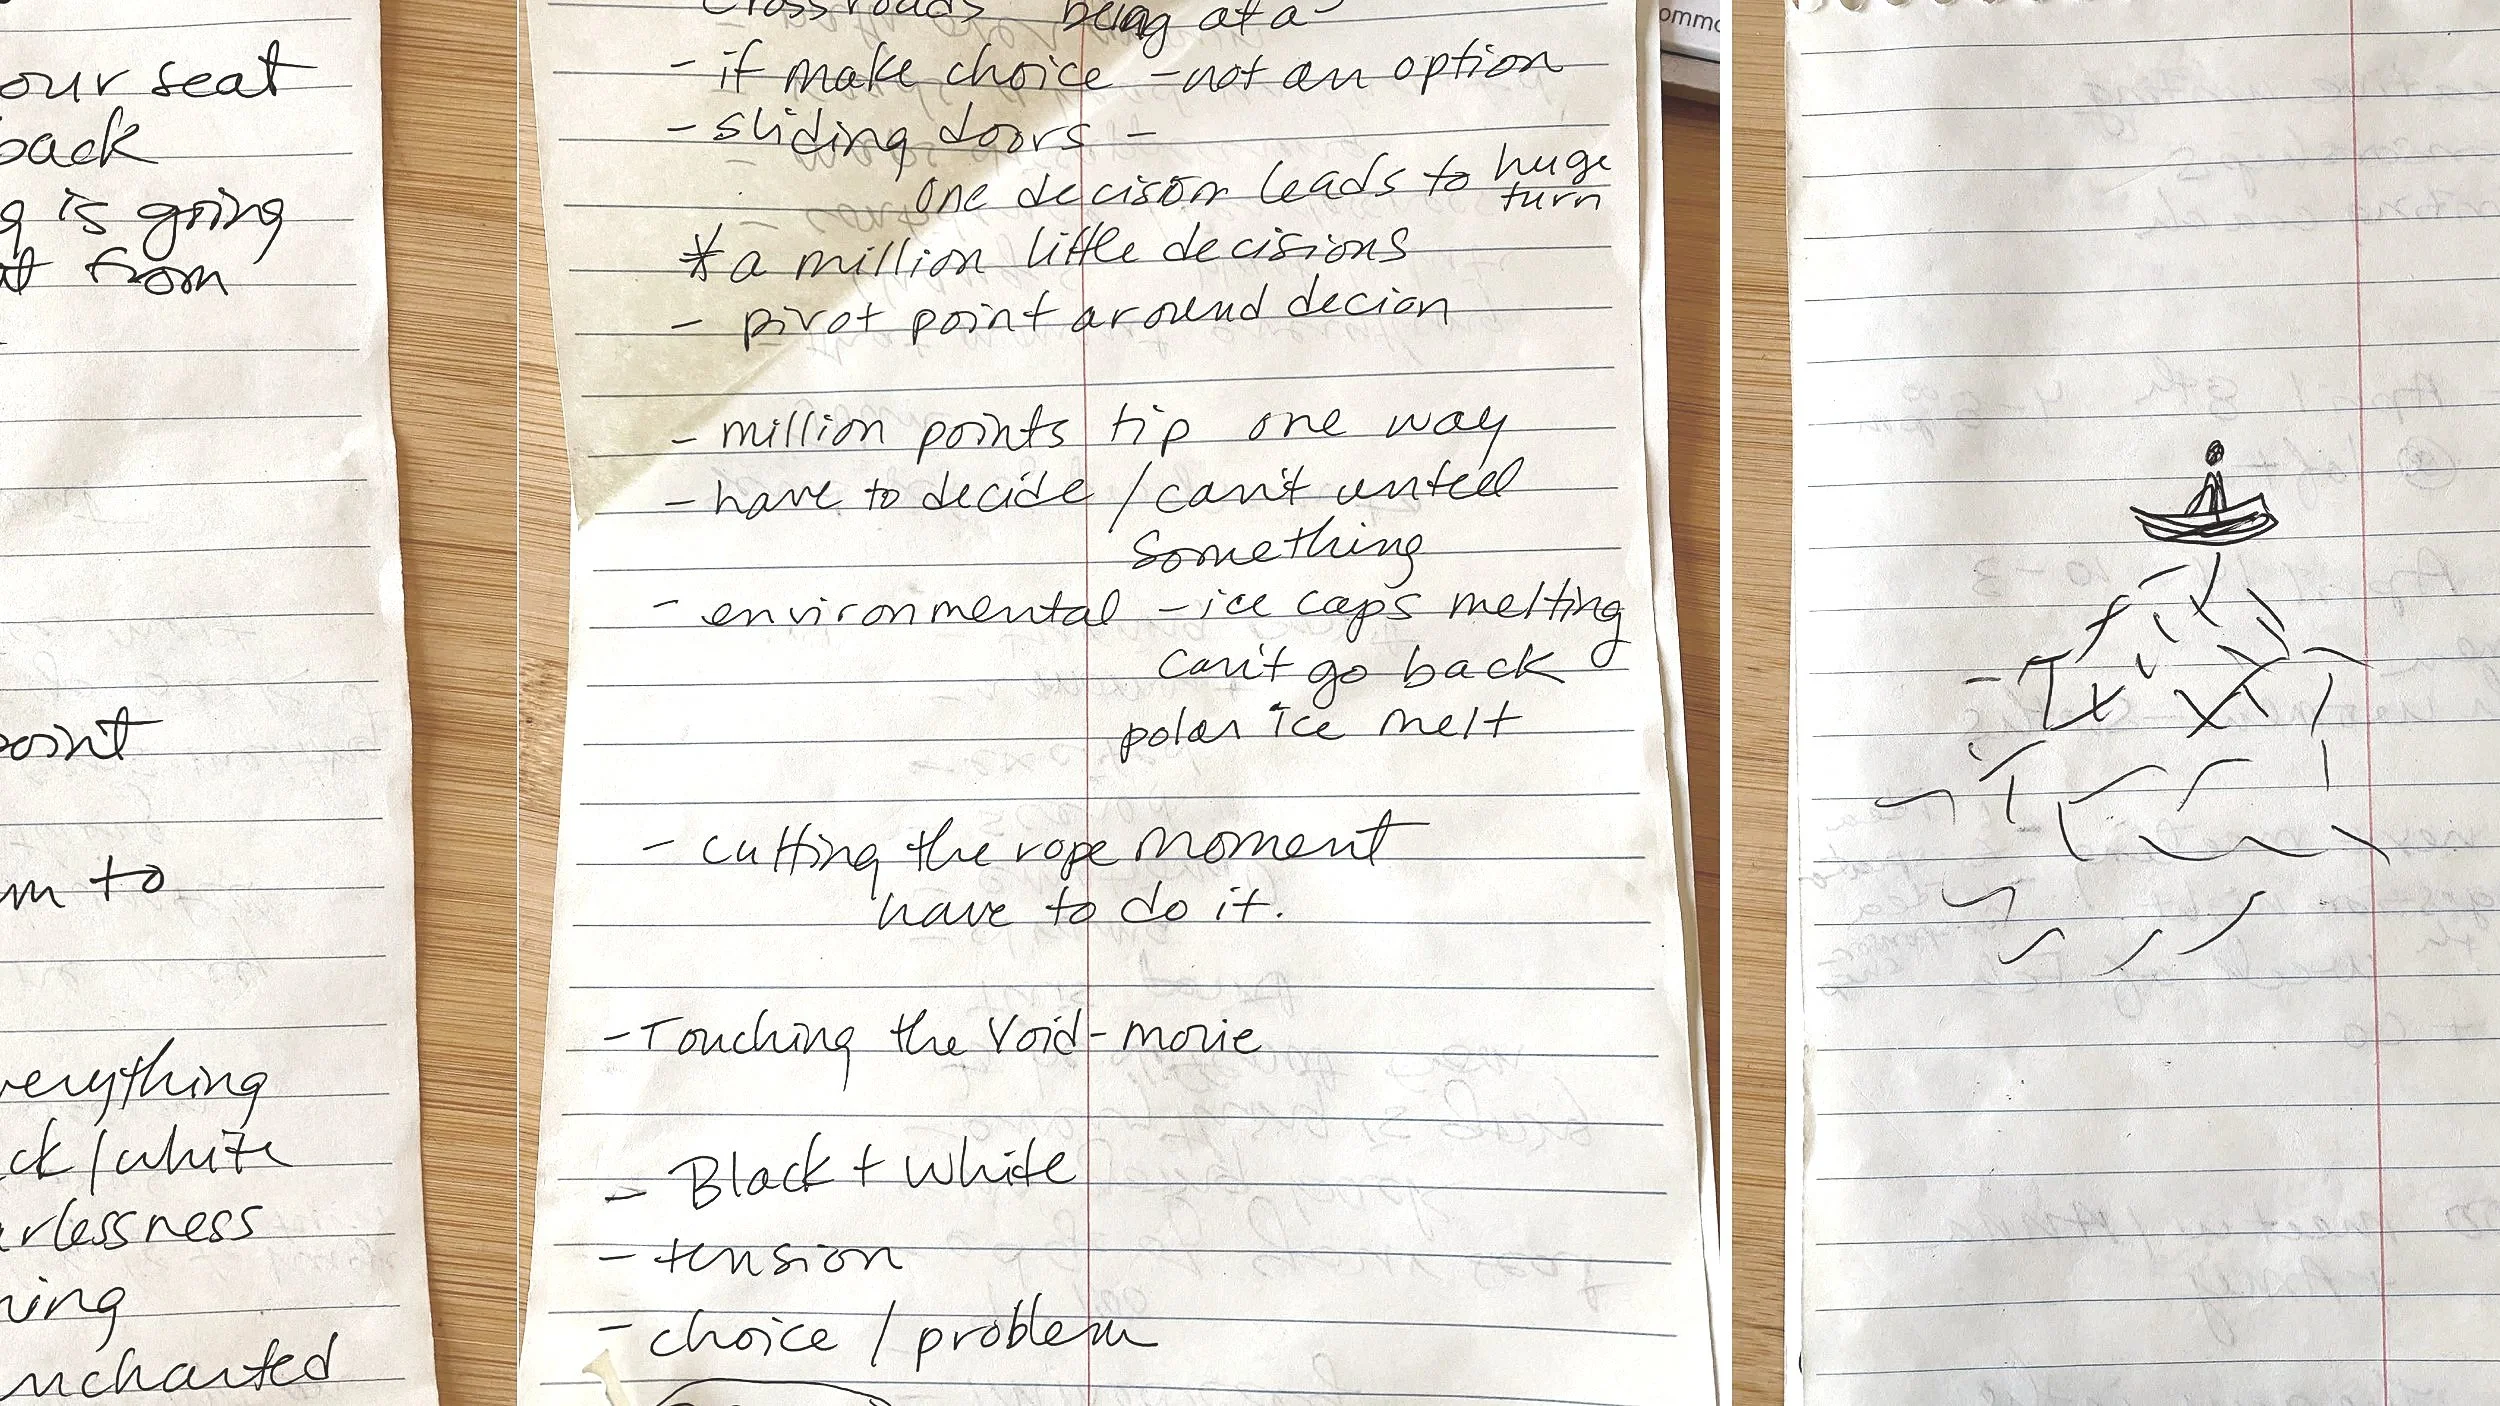 our seat
back
is going
from
point
to
everything
ck/white
arlessness
uncharted
Crossroads being at a
- if make choice - not an option
- sliding doors -
one decision leads to huge
turn
* a million little decisions
- pivot point around decion
- million points tip one way
- have to decide / can't untell
Something
- environmental - ice caps melting
can't go back
polar ice melt
- cutting the rope moment
have to do it.
- Touching the Void - movie
- Black + White
- tension
- choice / problem